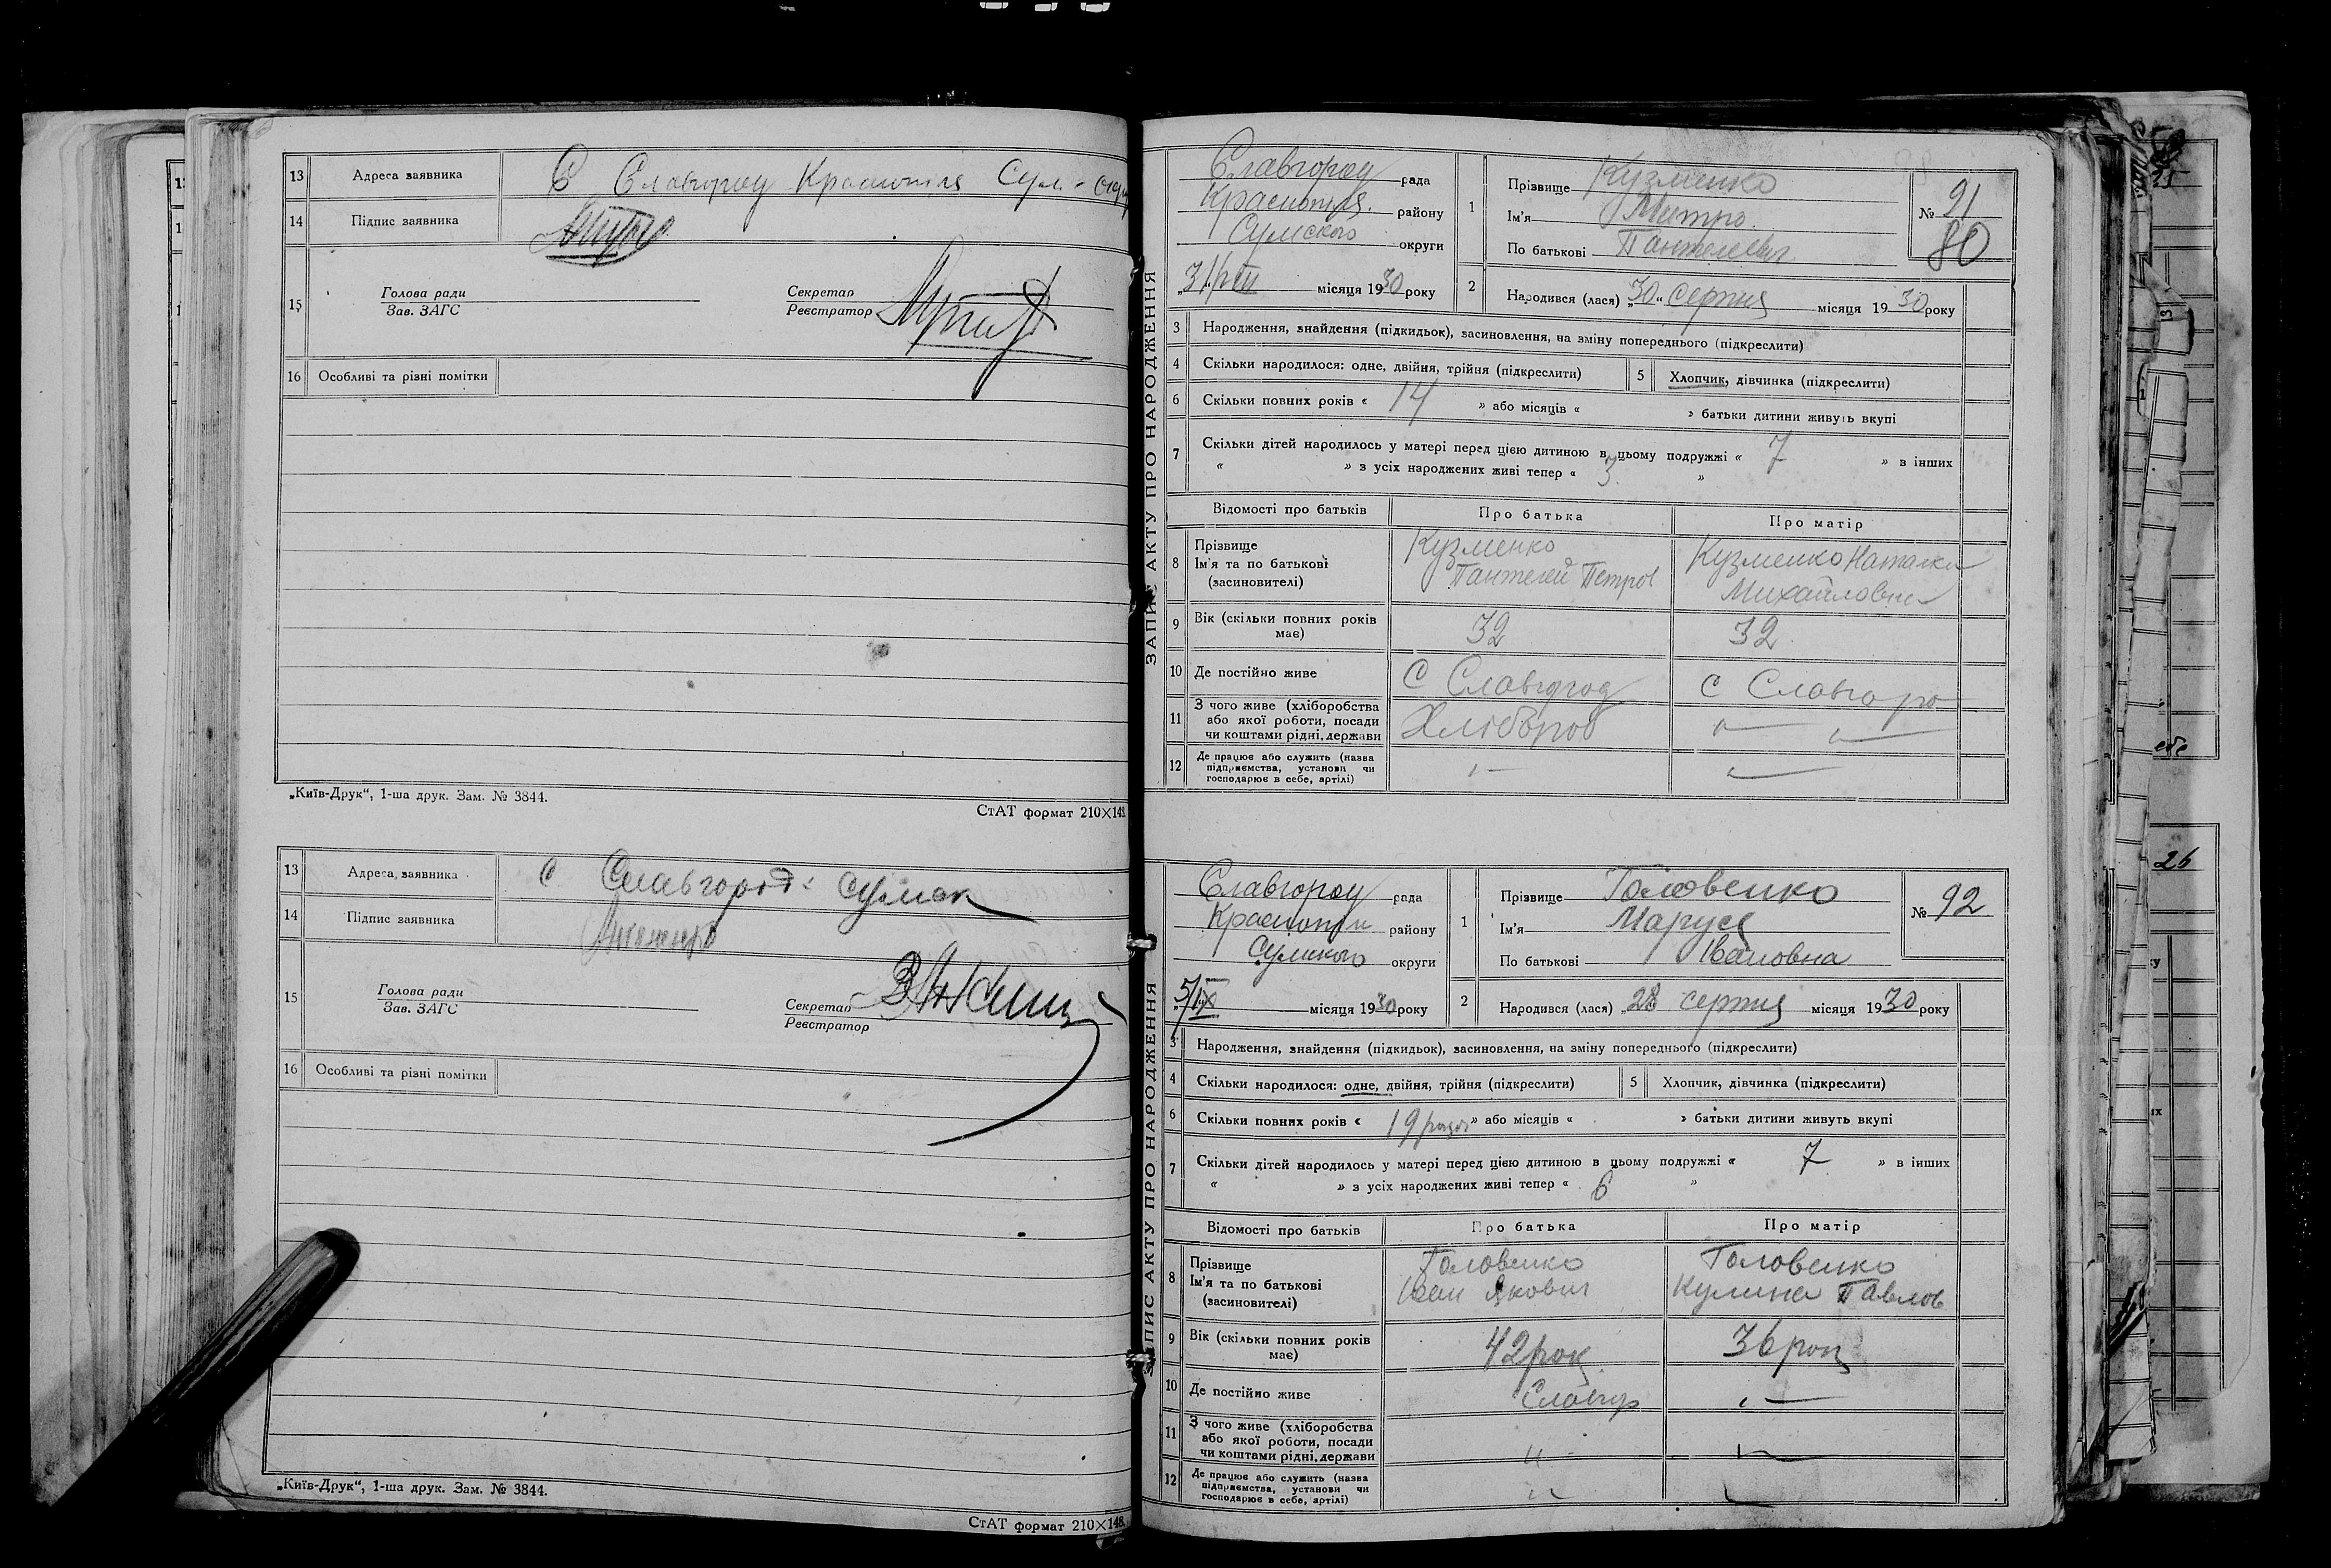 13 Адреса заявника С Славгород Краснопіля Сум. - окр
14 Підпис заявника
15 Голова ради
Зав. ЗАГС
Секретар
Реєстратор
16 Особливі та різні помітки
„Київ-Друк“, 1-ша друк. Зам. № 3844.
СтАТ формат 210×148.
13 Адреса заявника с Славгород Сумск
14 Підпис заявника
15 Голова ради
Зав. ЗАГС
Секретар
Реєстратор
16 Особливі та різні помітки
„Київ-Друк“, 1-ша друк. Зам. № 3844.
СтАТ формат 210×148.
ЗАПИС АКТУ ПРО НАРОДЖЕННЯ
Славгород рада
Краснопіля. району
Сумского округи
„31/VIII місяця 1930 року
1 Прізвище Кузменко
Ім'я Митро
По батькові Пантелеевич
№ 91
80
2 Народився (лася) „30“ серпня місяця 1930 року
3 Народження, знайдення (підкидьок), засиновлення, на зміну попереднього (підкреслити)
4 Скільки народилося: одне, двійня, трійня (підкреслити) 5 Хлопчик, дівчинка (підкреслити)
6 Скільки повних років « 14 » або місяців « » батьки дитини живуть вкупі
7 Скільки дітей народилось у матері перед цією дитиною в цьому подружжі « 7 » в інших
« » з усіх народжених живі тепер « 3 »
Відомості про батьків Про батька Про матір
8 Прізвище
Ім'я та по батькові
(засиновителі)
Кузменко
Пантелей Петров
Кузменко Наталка
Михайловна
9 Вік (скільки повних років
має)
32 32
10 Де постійно живе С Славгород с Славгоро
11 З чого живе (хліборобства
або якої роботи, посади
чи коштами рідні, держави
Хлібороб
12 Де працює або служить (назва
підприємства, установи чи
господарює в себе, артілі)
ЗАПИС АКТУ ПРО НАРОДЖЕННЯ
Славгород рада
Краснопіл району
Сумского округи
5/IX місяця 1930 року
1 Прізвище Головенко
Ім'я Маруся
По батькові Івановна
№ 92
2 Народився (лася) „28 серпня місяця 1930 року
3 Народження, знайдення (підкидьок), засиновлення, на зміну попереднього (підкреслити)
4 Скільки народилося: одне, двійня, трійня (підкреслити) 5 Хлопчик, дівчинка (підкреслити)
6 Скільки повних років « 19 » або місяців « » батьки дитини живуть вкупі
7 Скільки дітей народилось у матері перед цією дитиною в цьому подружжі « 7 » в інших
« » з усіх народжених живі тепер « 6 »
Відомості про батьків Про батька Про матір
8 Прізвище
Ім'я та по батькові
(засиновителі)
Головенко
Іван Якович
Головенко
Кулина Павлов
9 Вік (скільки повних років
має)
42 рок 36 рок
10 Де постійно живе Славгор
11 З чого живе (хліборобства
або якої роботи, посади
чи коштами рідні, держави
12 Де працює або служить (назва
підприємства, установи чи
господарює в себе, артілі)
26